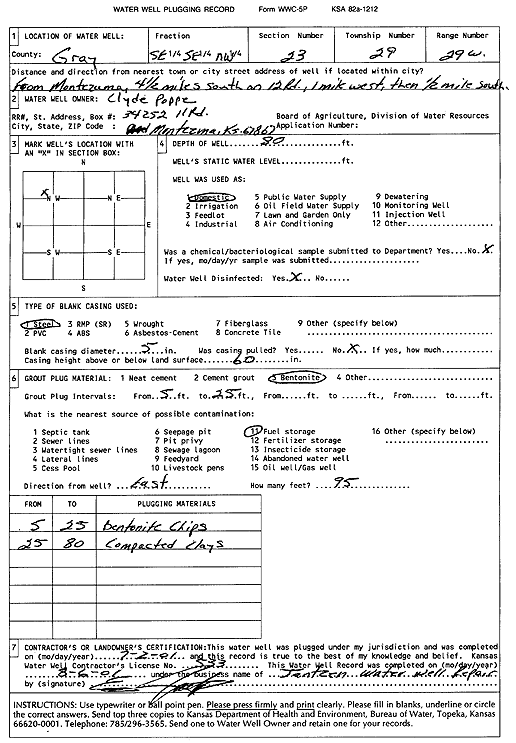 WATER WELL PLUGGING RECORD Form WWC-5P KSA 82a-1212
1 LOCATION OF WATER WELL: Fraction Section Number Township Number Range Number
County: Gray SE 1/4 SE 1/4 NW 1/4 23 29 29 w.
Distance and direction from nearest town or city street address of well if located within city?
From Montezuma, 4 1/2 miles south on 12 Rd., 1 mile west, then 1/2 mile south.
2 WATER WELL OWNER: Clyde Poppe
RR#, St. Address, Box #: 34252 11 Rd. Board of Agriculture, Division of Water Resources
City, State, ZIP Code : Montezuma, Ks. 67867 Application Number:
3 MARK WELL'S LOCATION WITH AN "X" IN SECTION BOX:
N
X
N W N E
W E
S W S E
S
4 DEPTH OF WELL......80......ft.
WELL'S STATIC WATER LEVEL..........ft.
WELL WAS USED AS:
1 Domestic 5 Public Water Supply 9 Dewatering
2 Irrigation 6 Oil Field Water Supply 10 Monitoring Well
3 Feedlot 7 Lawn and Garden Only 11 Injection Well
4 Industrial 8 Air Conditioning 12 Other..........
Was a chemical/bacteriological sample submitted to Department? Yes....No.X
If yes, mo/day/yr sample was submitted..........
Water Well Disinfected: Yes.X.. No......
5 TYPE OF BLANK CASING USED:
1 Steel 3 RMP (SR) 5 Wrought 7 Fiberglass 9 Other (specify below)
2 PVC 4 ABS 6 Asbestos-Cement 8 Concrete Tile ..........
Blank casing diameter.....5.....in. Was casing pulled? Yes...... No.X.. If yes, how much..........
Casing height above or below land surface......60......in.
6 GROUT PLUG MATERIAL: 1 Neat cement 2 Cement grout 3 Bentonite 4 Other..........
Grout Plug Intervals: From..5..ft. to..25..ft., From......ft. to ......ft., From...... to......ft.
What is the nearest source of possible contamination:
1 Septic tank 6 Seepage pit 11 Fuel storage 16 Other (specify below)
2 Sewer lines 7 Pit privy 12 Fertilizer storage ..........
3 Watertight sewer lines 8 Sewage lagoon 13 Insecticide storage
4 Lateral lines 9 Feedyard 14 Abandoned water well
5 Cess Pool 10 Livestock pens 15 Oil well/Gas well
Direction from well? ...East... How many feet? ...95...
FROM TO PLUGGING MATERIALS
5 25 Bentonite Chips
25 80 Compacted Clays
7 CONTRACTOR'S OR LANDOWNER'S CERTIFICATION:This water well was plugged under my jurisdiction and was completed
on (mo/day/year)......7-2-01......and this record is true to the best of my knowledge and belief. Kansas
Water Well Contractor's License No. ...533... This Water Well Record was completed on (mo/day/year)
...8-6-01... under the business name of Jantzen Water Well Repair
by (signature)
INSTRUCTIONS: Use typewriter or ball point pen. Please press firmly and print clearly. Please fill in blanks, underline or circle
the correct answers. Send top three copies to Kansas Department of Health and Environment, Bureau of Water, Topeka, Kansas
66620-0001. Telephone: 785/296-3565. Send one to Water Well Owner and retain one for your records.